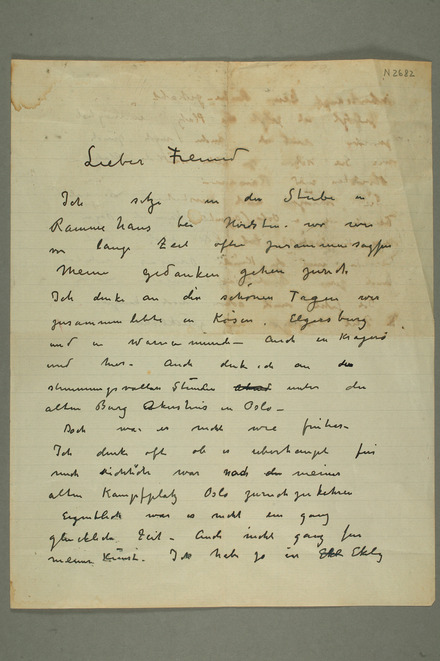 N 2682
Lieber Freund
Ich sitze in der Stube in
Ramme Haus bei Hvitsten. wo wir
vor lange Zeit öfter zusammen sassen
Meine gedanken gehen zurück
Ich denke an die schönen Tagen wir
zusammen lebte in Kösen. Elgersburg
und in Warnemünde – Auch in Kragerö
und hier – Auch denk ich an die
stimmungsvollen Stunden unter der
alten Burg Akershus in Oslo –
Doch war es nicht wie früher –
Ich denke oft ob es ueberhaupt für
mich richtich war nach meinen
alten Kampfplatz Oslo zurückzukehren
Eigentlich war es nicht ein ganz
glückliche Zeit – Auch nicht ganz für
meine Kunst. Ich habe ja in Ekely